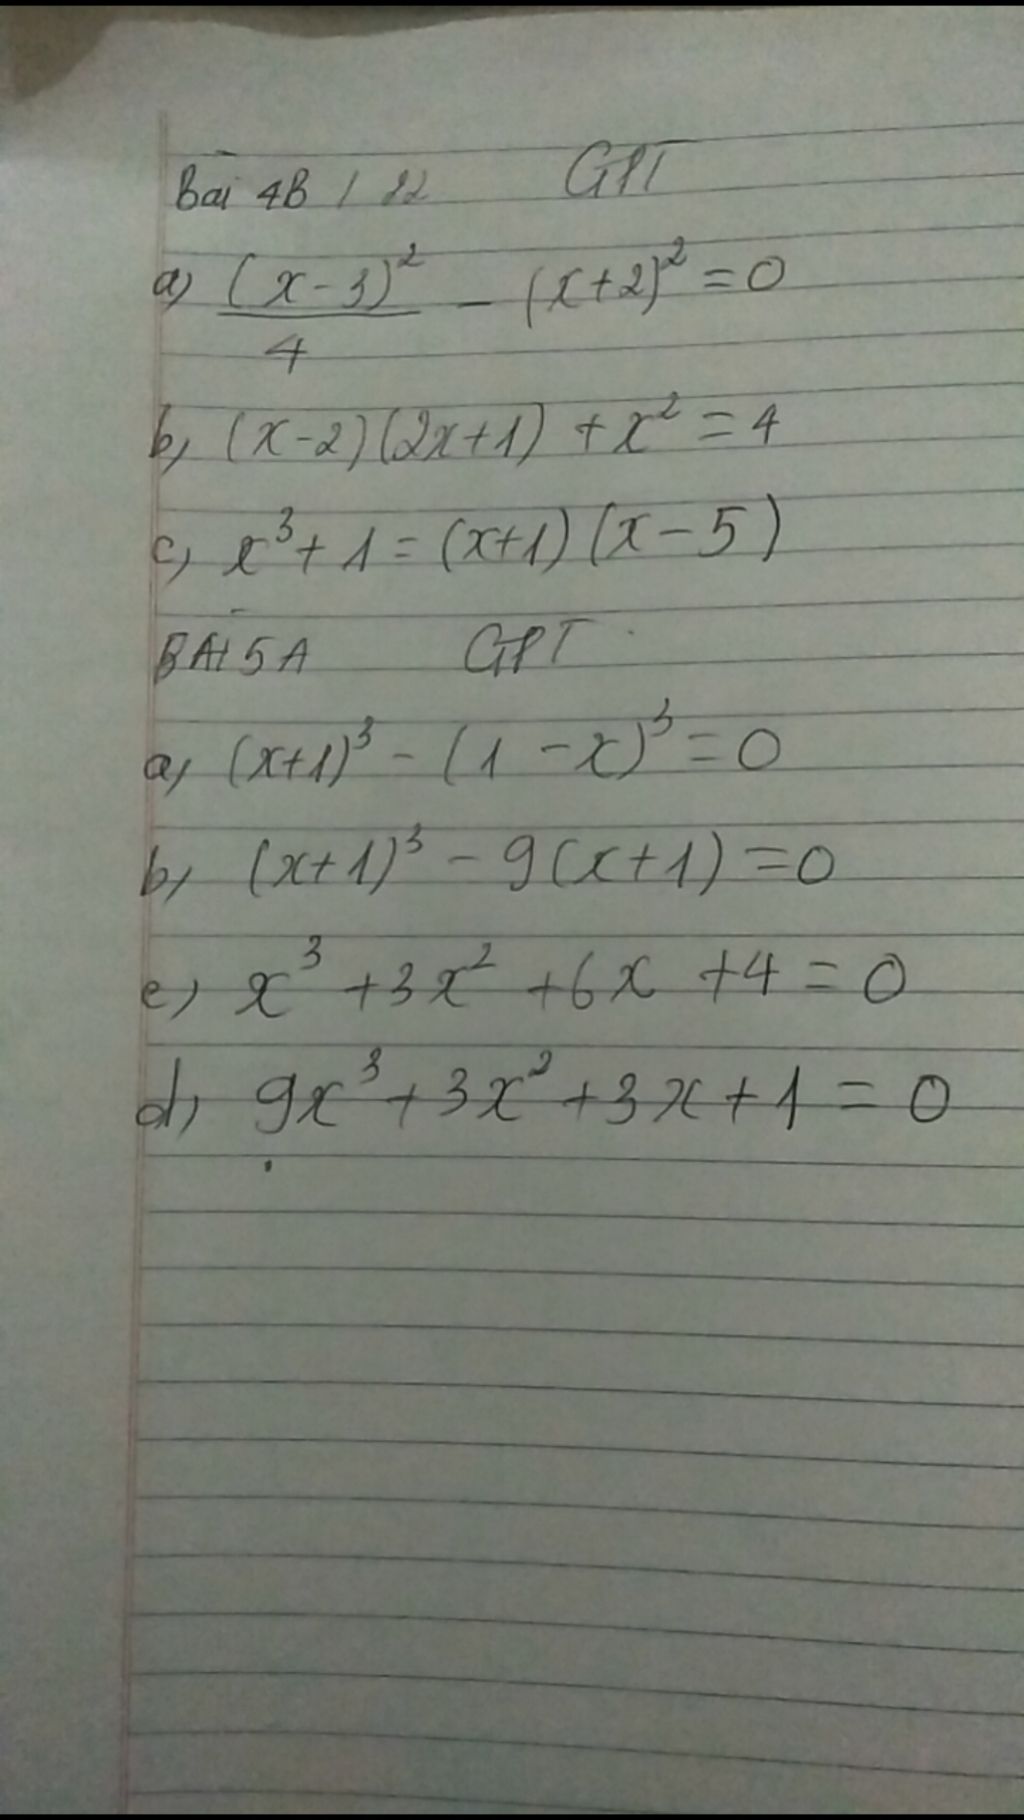 Bài 4B / 22 GPT
a) (x-3)²/4 - (x+2)² = 0
b) (x-2)(2x+1) + x² = 4
c) x³ + 1 = (x+1)(x-5)
BÀI 5A GPT
a) (x+1)³ - (1-x)³ = 0
b) (x+1)³ - 9(x+1) = 0
c) x³ + 3x² + 6x + 4 = 0
d) 9x³ + 3x² + 3x + 1 = 0